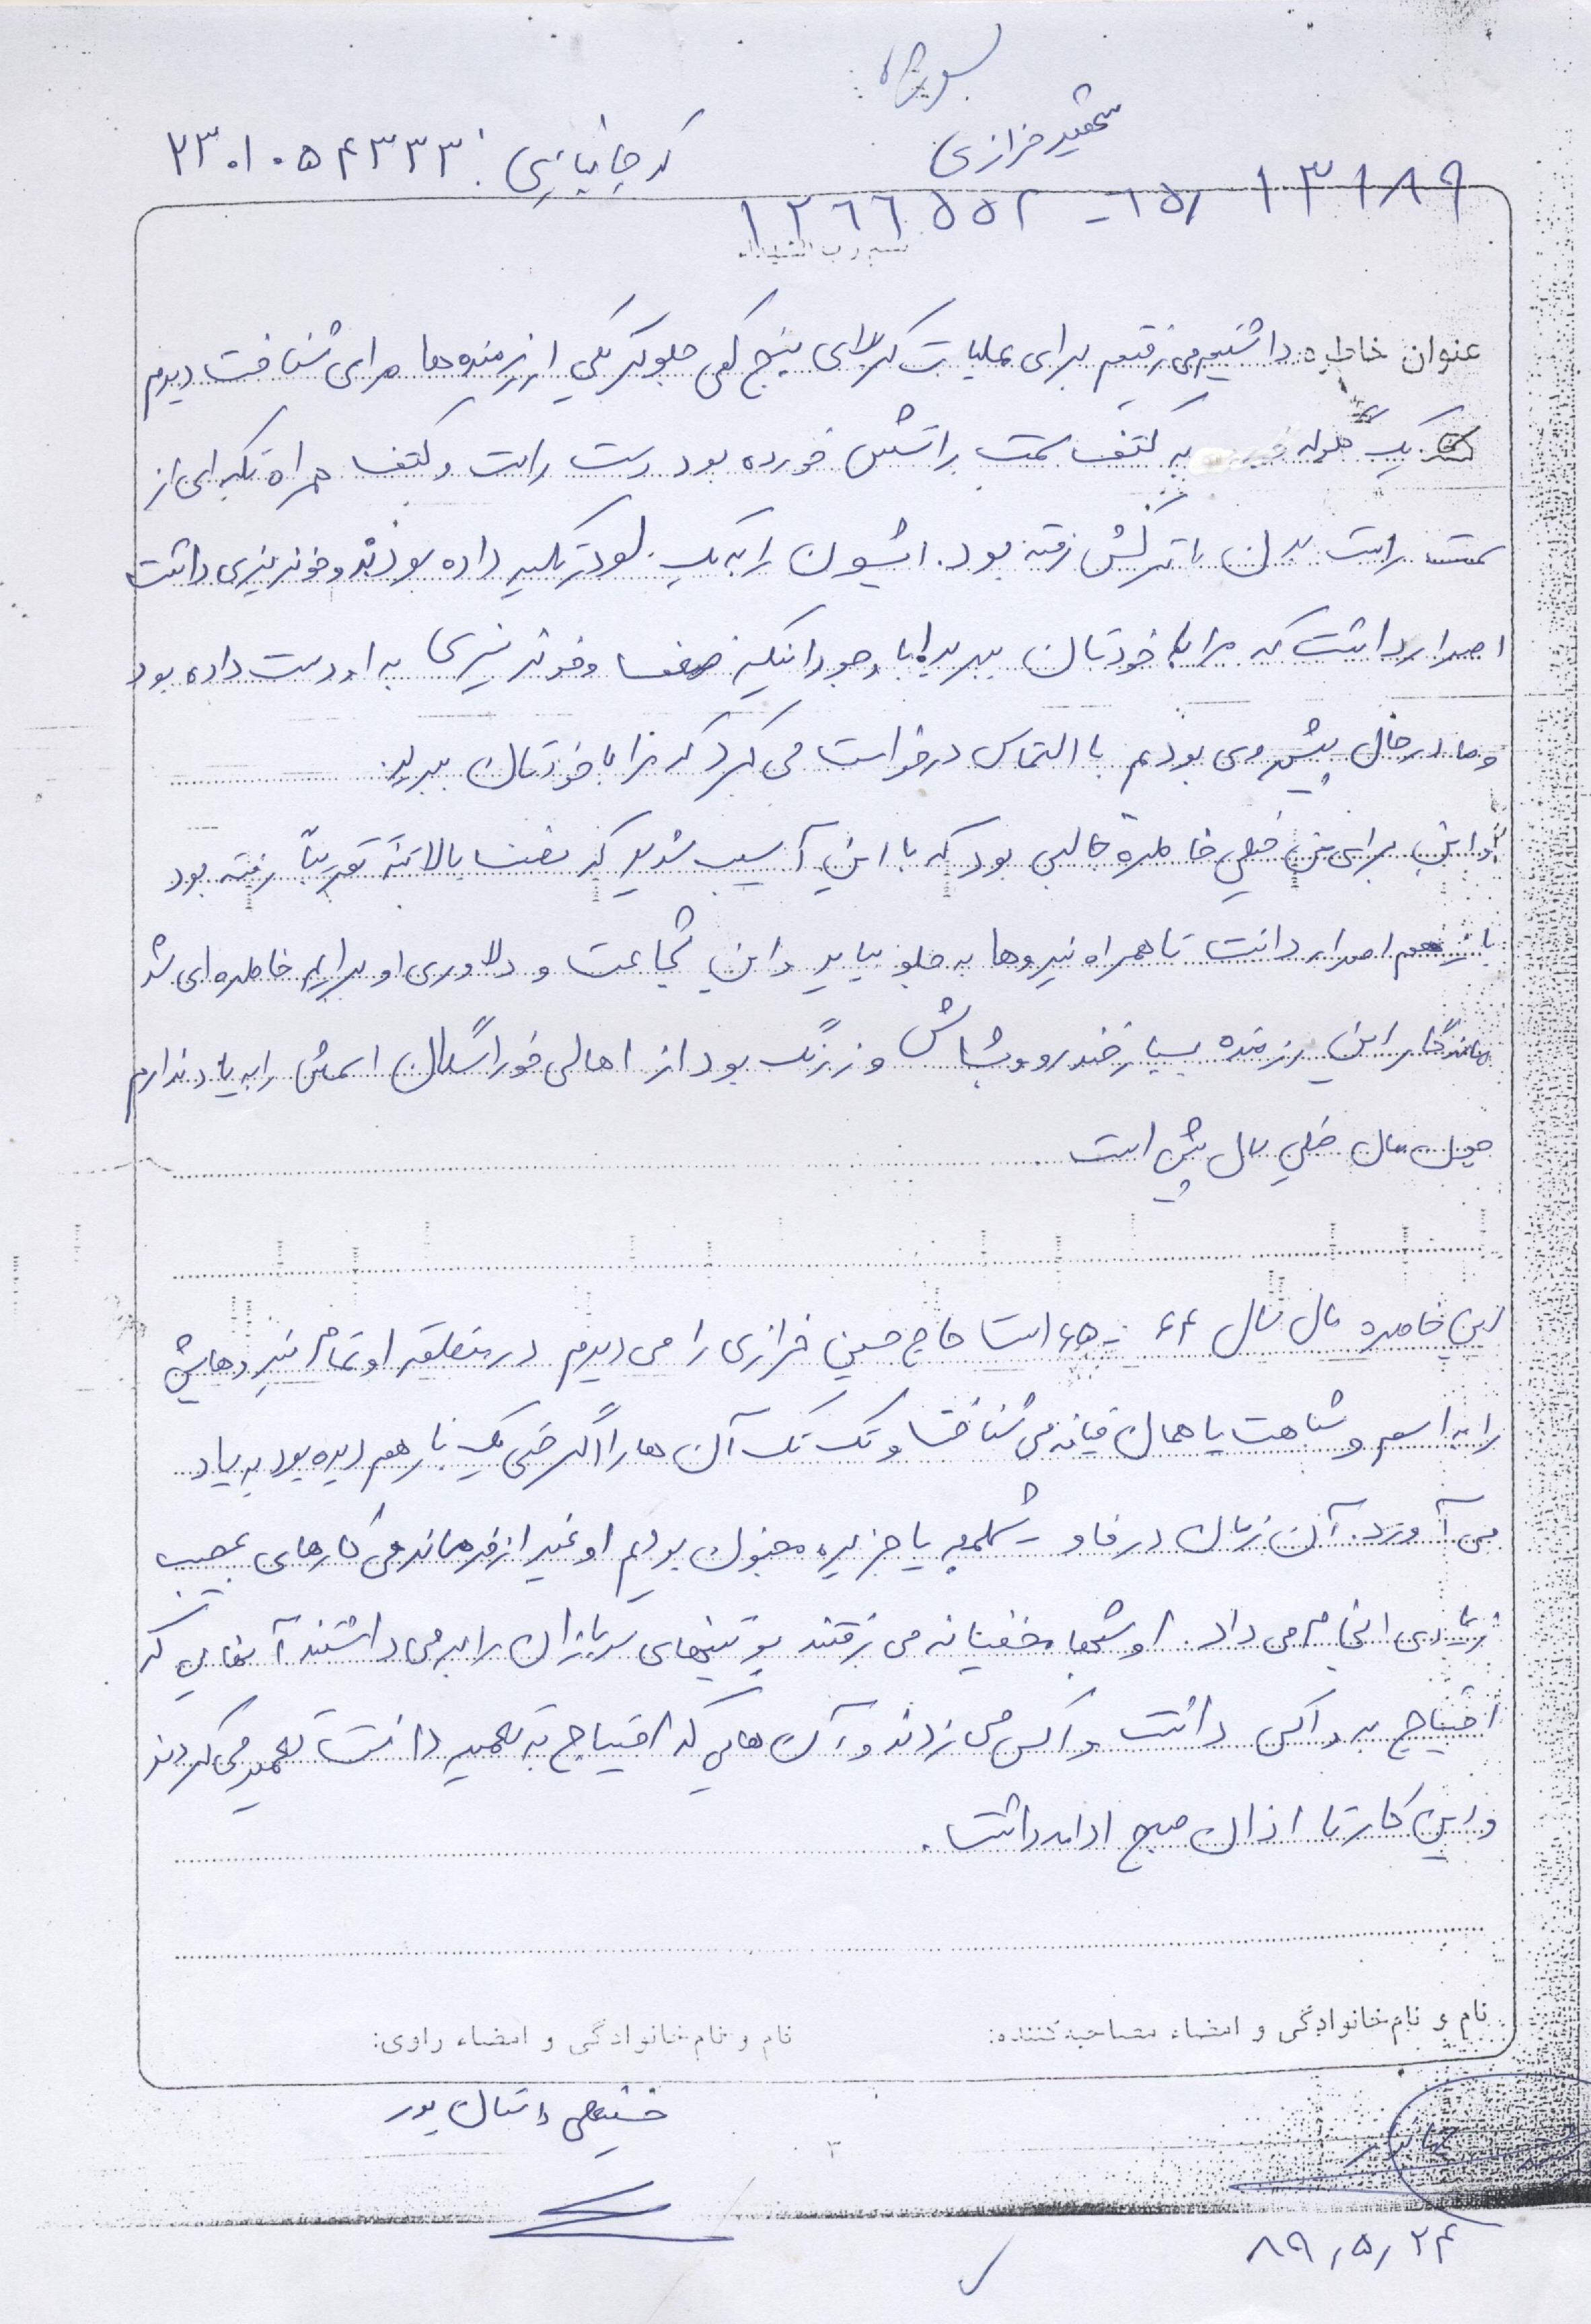 شهید خرازی
کد جانبازی: ۲۳۰۱۰۵۴۳۳۳
عنوان خاطره داشتیم می رفتیم برای عملیات کربلای پنج کمی جلوتر یکی از رزمنده ها را برای شناخت دیدم
که یک گلوله به کتف سمت راستش خورده بود دست راست و کتف همراه تکه ای از
سمت راست بدن با ترکش رفته بود. ایشون را به یک لودر تکیه داده بودند و خونریزی داشت
اصرار داشت که مرا با خودتان ببرید با وجود اینکه ضعف و خونریزی به او دست داده بود
و ما در حال پیشروی بودیم با التماس درخواست می کرد که مرا با خودتان ببرید.
و این برای من خیلی خاطره جالبی بود که با این آسیب شدید که نصف بالا تنه تقریباً رفته بود
باز هم اصرار داشت تا همراه نیروها به جلو بیاید و این شجاعت و دلاوری او برایم خاطره ای شد
ماندگار این رزمنده بسیار خندرو و بشاش و زرنگ بود از اهالی خوراسگان اسمش را به یاد ندارم
چون مال خیلی سال پیش است.
این خاطره مال سال ۶۴ - ۶۵ است حاج حسین خرازی را می دیدم در منطقه او تمام نیروهایش
را به اسم و شباهت یا همان قیافه می شناخت و تک تک آن ها را اگر حتی یک بار هم دیده بود به یاد
می آورد. آن زمان در فاو - شلمچه یا جزیره مجنون بودیم او غیر از فرماندهی کارهای عجیب
زیادی انجام می داد. او شبها مخفیانه می رفتند پوتینهای سربازان را برمی داشتند آنهایی که
احتیاج به واکس داشت واکس می زدند و آن هایی که احتیاج به تعمیر داشت تعمیر می کردند
و این کار تا اذان صبح ادامه داشت.
نام و نام خانوادگی و امضاء مصاحبه کننده:
نام و نام خانوادگی و امضاء راوی:
۸۹/۵/۲۴